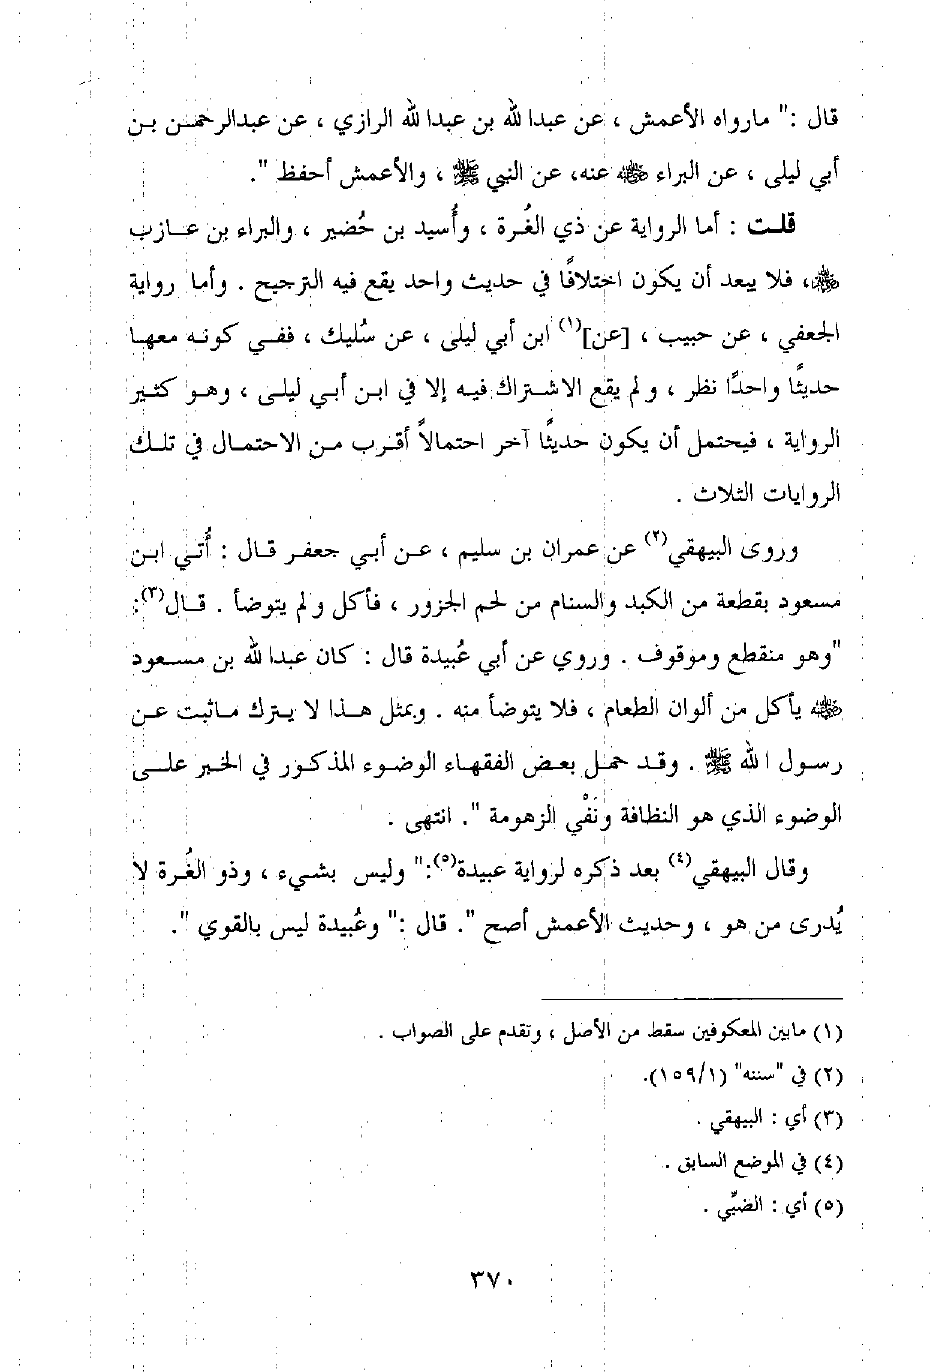 قال :" مارواه الأعمش ، عن عبدا لله بن عبدا لله الرازي ، عن عبدالرحمن بن
أبي ليلى ، عن البراء ﵁ عنه، عن النبي ﷺ ، والأعمش أحفظ ".
قلت : أما الرواية عن ذي الغُرة ، وأُسيد بن حُضير ، والبراء بن عازب
﵃، فلا يبعد أن يكون اختلافًا في حديث واحد يقع فيه الترجيح . وأما رواية
الجعفي ، عن حبيب ، [عن](١) ابن أبي ليلى ، عن سُليك ، ففي كونه معها
حديثًا واحدًا نظر ، و لم يقع الاشتراك فيه إلا في ابن أبي ليلى ، وهو كثير
الرواية ، فيحتمل أن يكون حديثًا آخر احتمالاً أقرب من الاحتمال في تلك
الروايات الثلاث .
وروى البيهقي(٢) عن عمران بن سليم ، عن أبي جعفر قال : أُتي ابن
مسعود بقطعة من الكبد والسنام من لحم الجزور ، فأكل و لم يتوضأ . قال(٣):
"وهو منقطع وموقوف . وروي عن أبي عُبيدة قال : كان عبدا لله بن مسعود
﵁ يأكل من ألوان الطعام ، فلا يتوضأ منه . وبمثل هذا لا يترك ماثبت عن
رسول ا لله ﷺ . وقد حمل بعض الفقهاء الوضوء المذكور في الخبر على
الوضوء الذي هو النظافة ونَفْي الزهومة ". انتهى .
وقال البيهقي(٤) بعد ذكره لرواية عبيدة(٥):" وليس بشيء ، وذو الغُرة لا
يُدرى من هو ، وحديث الأعمش أصح ". قال :" وعُبيدة ليس بالقوي ".
(١) مابين المعكوفين سقط من الأصل ، وتقدم على الصواب .
(٢) في "سننه" (١٥٩/١).
(٣) أي : البيهقي .
(٤) في الموضع السابق .
(٥) أي : الضبِّي .
٣٧٠